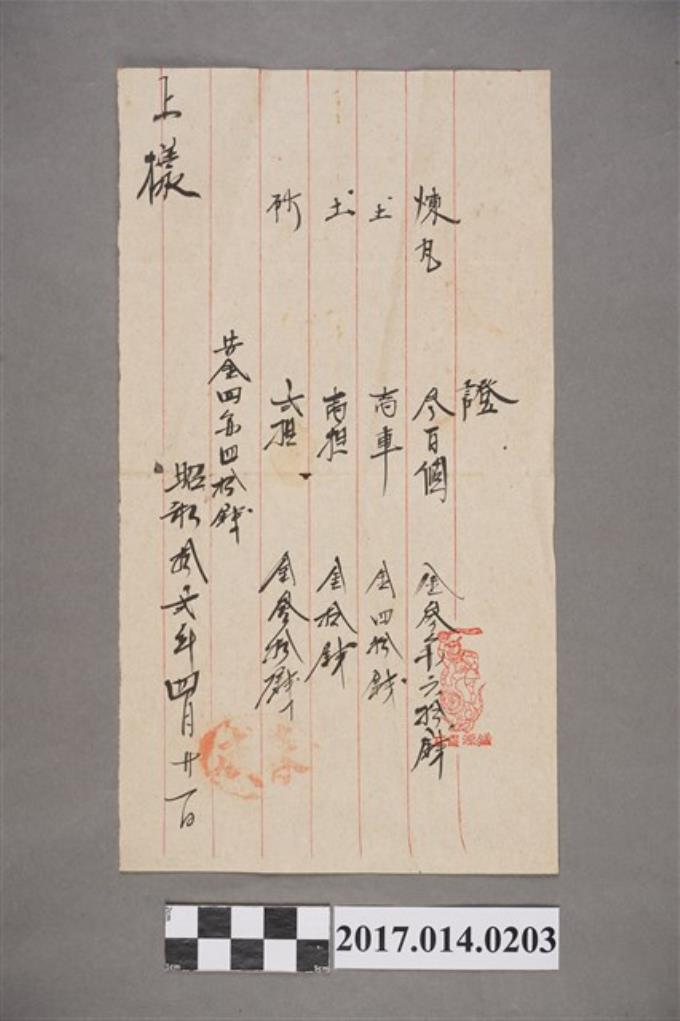 證
煉瓦 叁百個 金叁円六拾錢
土 壱車 金四拾錢
土 壱担 金拾錢
砂 弍担 金叁拾錢
共金四円四拾錢
昭和拾弍年四月廿一日
上樣
2017.014.0203